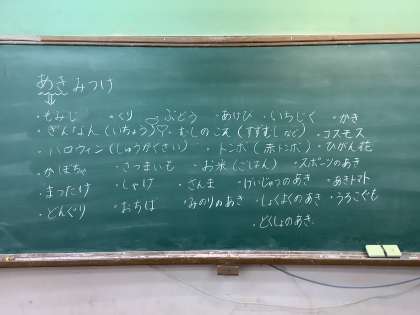 あきみつけ
・もみじ ・くり ・ぶどう ・あけび ・いちじく ・かき
・ぎんなん(いちょう) ・むしのこえ(すずむしなど) ・コスモス
・ハロウィン(しゅうかくさい) ・トンボ(赤トンボ) ・ひがん花
・かぼちゃ ・さつまいも ・お米(ごはん) ・スポーツのあき
・まつたけ ・しゃけ ・さんま ・げいじゅつのあき ・あきトマト
・どんぐり ・おちば ・みのりのあき ・しょくよくのあき ・うろこぐも
・どくしょのあき